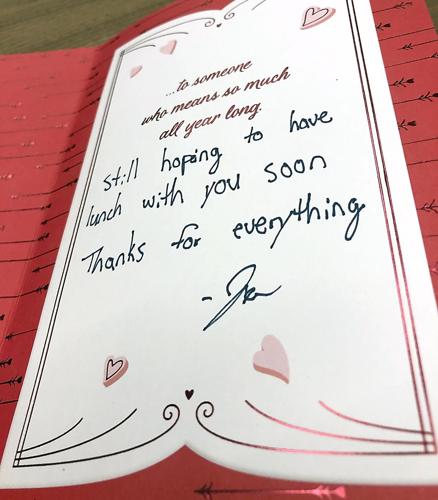 ...to someone
who means so much
all year long.
still hoping to have
lunch with you soon
Thanks for everything